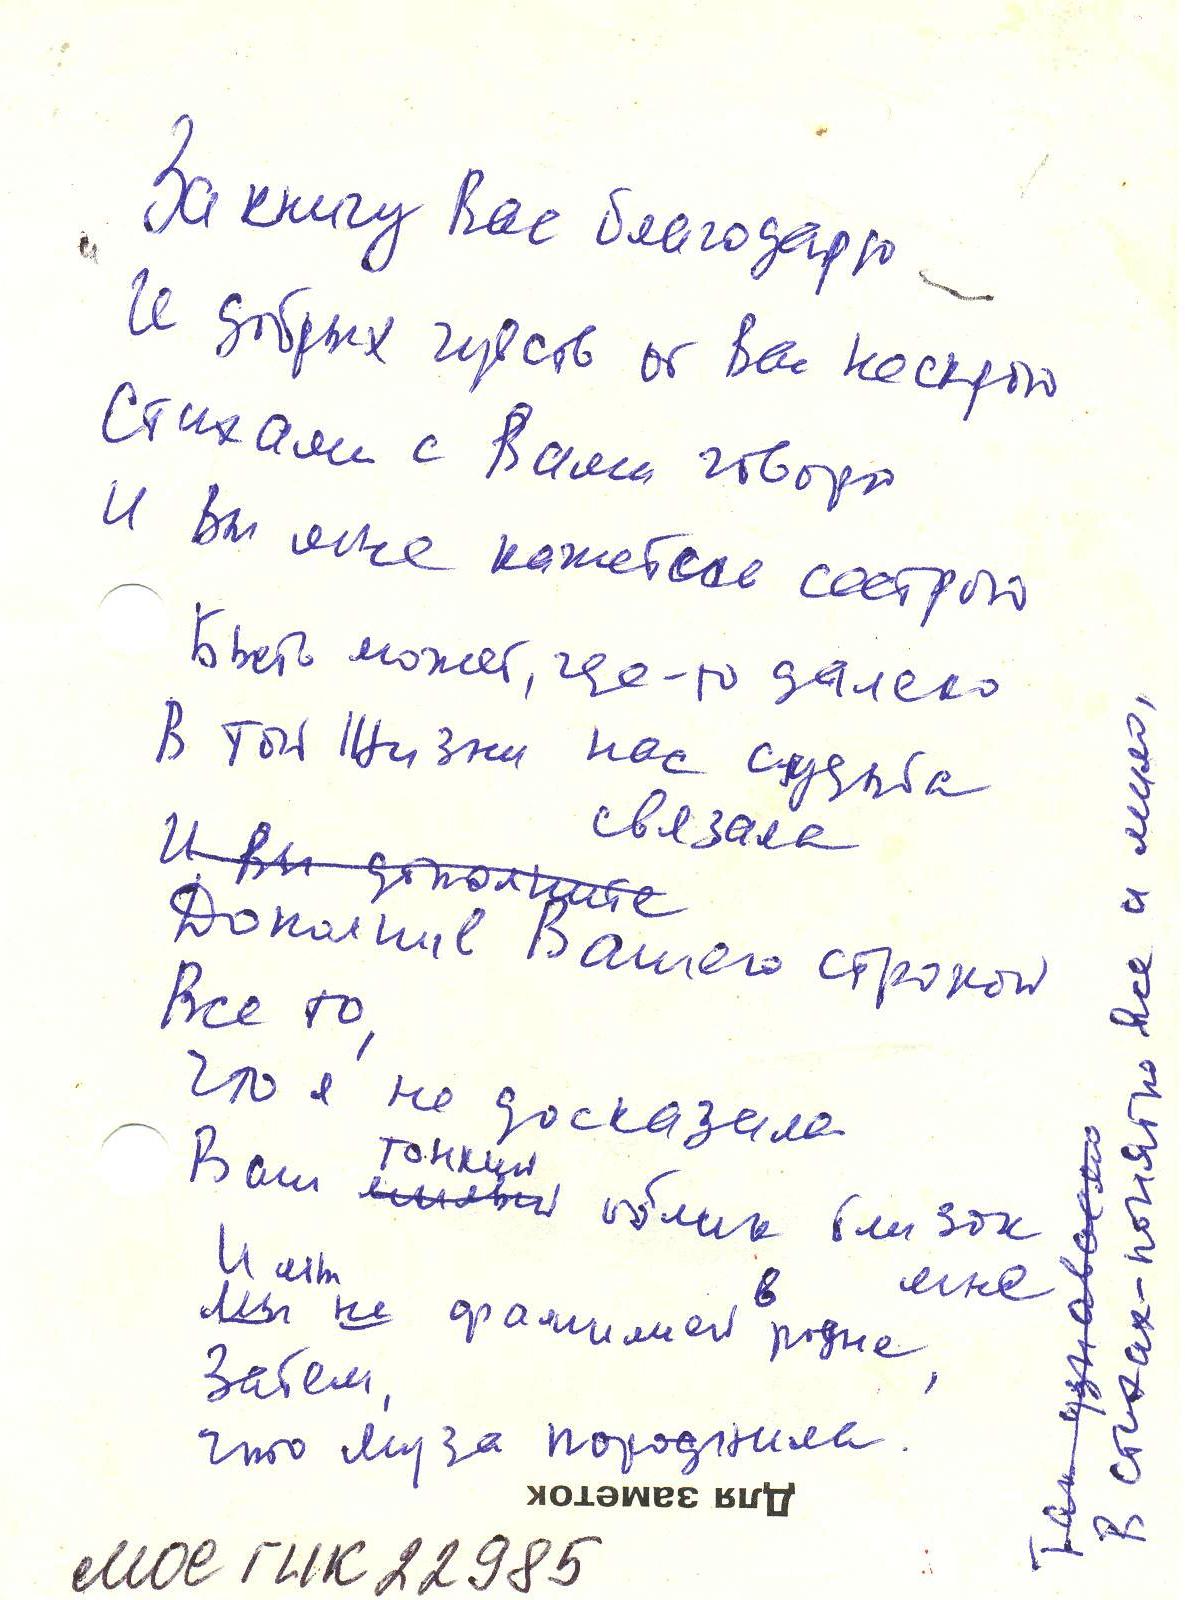 За книгу Вас благодарю
И добрых чувств от Вас не скрою
Стихами с Вами говорю
И Вы мне кажетесь сестрою
Быть может, где-то далеко
В той жизни нас судьба
связала
И Вы дополните
Дополнив Вашею строкой
Все то,
Что я не досказала
Ваш милый облик близок
тонкий
мне
И мы
Мы не фамилией в родне,
Затем,
что муза породнила.
Так узнаваемо
В стихах-понятно все и мило,
Для заметок
МОЕ ГИК 22985